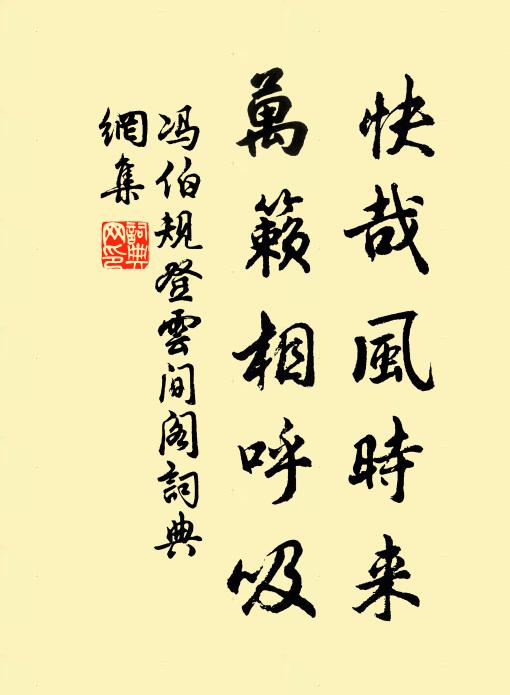 快哉風時来
萬籁相呼吸
冯伯规登雲间阁詞典
網集
詞典
网印